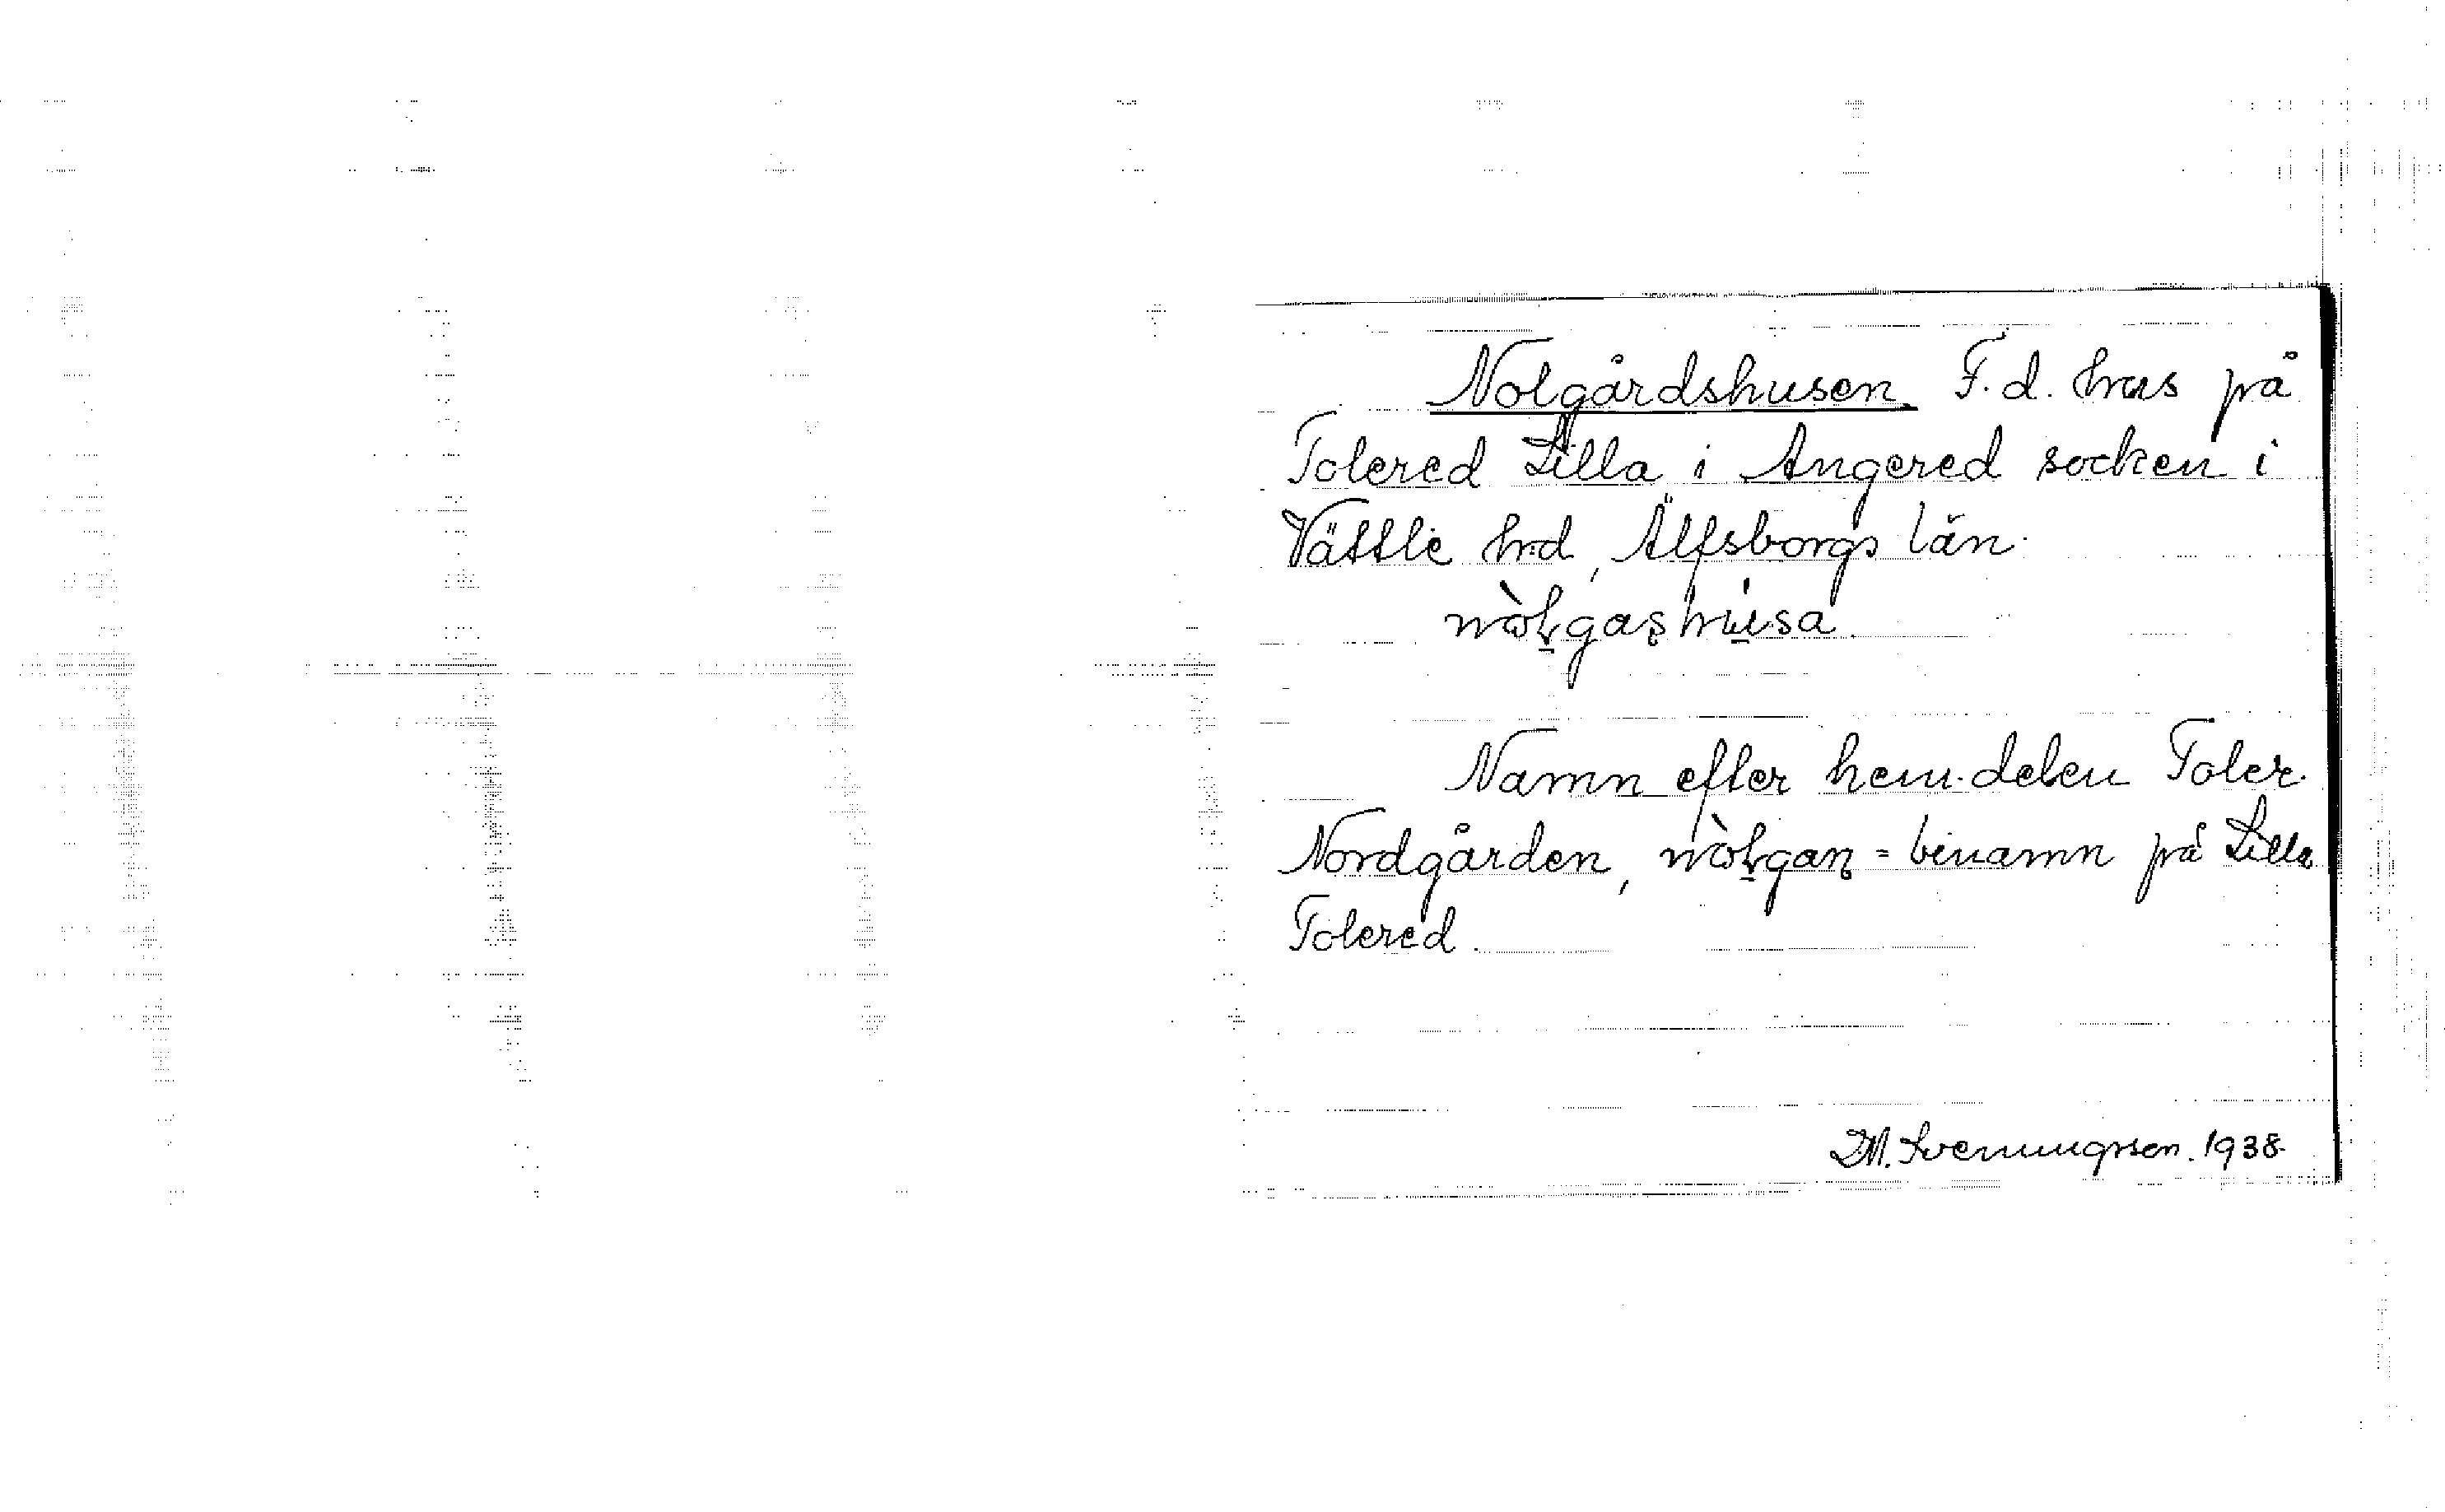 Nolgårdshusen. F. d. hus på
Tolered Lilla i Angered socken i
Vättle hd, Älfsborgs län.
nòlgashúsa.
Namn efter hem. delen Toler.
Nordgården, nòlgan = binamn på Lilla
Tolered.
D.M. Svenungsson. 1938